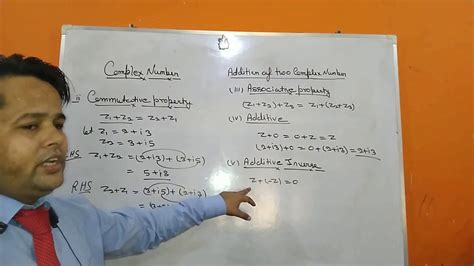 Complex Number
ii Commutative property
Z₁+Z₂ = Z₂+Z₁
let Z₁ = 2+i3
Z₂ = 3+i5
RHS Z₁+Z₂ = (2+i3)+(3+i5)
= 5+i8
RHS Z₂+Z₁ = (3+i5)+(2+i3)
Addition of two Complex Number
(iii) Associative property
(Z₁+Z₂)+Z₃ = Z₁+(Z₂+Z₃)
(iv) Additive
Z+0 = 0+Z = Z
(2+i3)+0 = 0+(2+i3) = 2+i3
(v) Additive Inverse
Z+(-Z) = 0